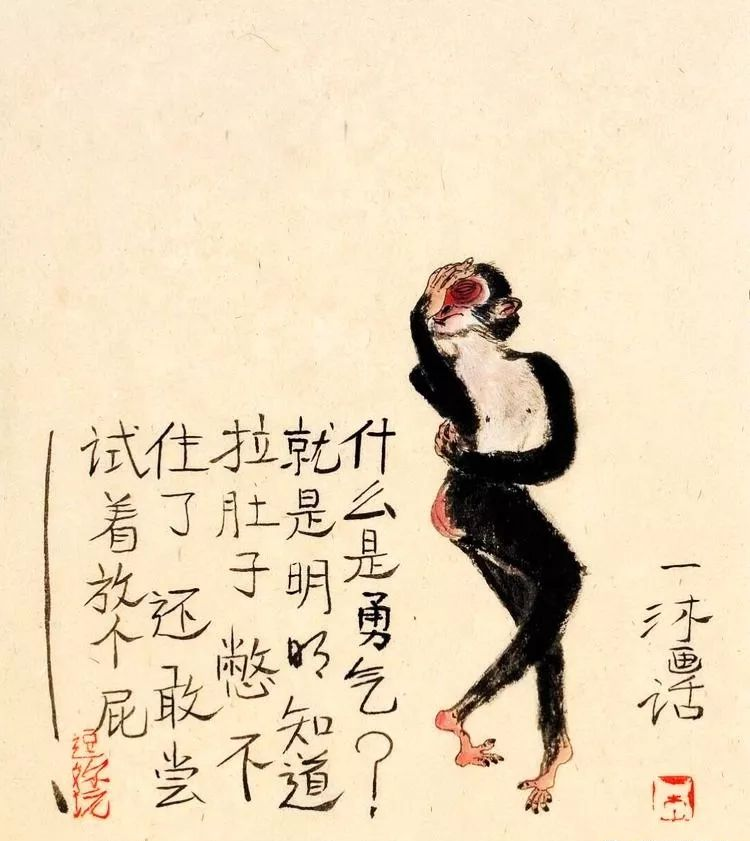 什么是勇气？
就是明明知道
拉肚子 憋不
住了 还敢尝
试着放个屁
逗你玩
一沐画话